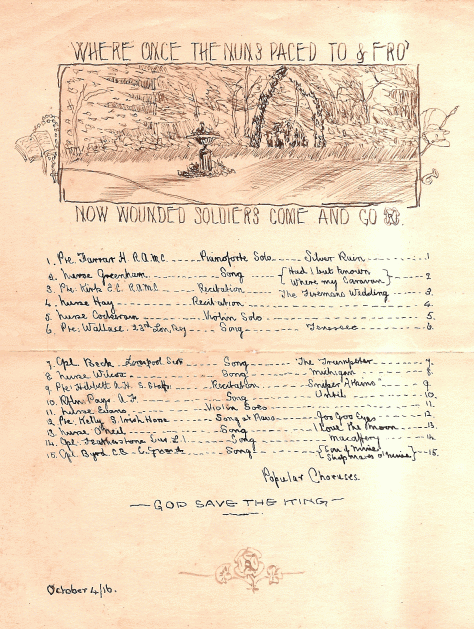 WHERE ONCE THE NUNS PACED TO & FRO'
NOW WOUNDED SOLDIERS COME AND GO
1. Pte. Farrar H. R.A.M.C. Pianoforte Solo Silver Rain 1
2. Nurse Greenham Song { Had I but known Where my Caravan } 2
3. Pte. Kirk E.C. R.A.M.C. Recitation The Firemans Wedding 3.
4. Nurse Hay Recitation 4.
5. Nurse Violin Solo 5.
6. Pte. Wallace. 23rd Lon. Reg Song Tennessee 6.
7. Cpl. Beck Liverpool Song The Trumpeter 7.
8. Nurse Wilcox Song Michigan 8.
9. Pte. A.H. S. Staffs Recitation Sniper 9.
10. Rfln. Page A.F. Song Until 10.
11. Nurse Evans Violin Solo 11.
12. Pte. Kelly S. Irish Horse Song at Piano Goo Goo Eyes 12.
13. Nurse O'Neil Song I love the Moon 13.
14. Cpl. Featherstone Song Macaffery 14.
15. Cpl. Byrd C.B. Song { Son of Mine Shipmates o' Mine } 15.
Popular Choruses.
GOD SAVE THE KING
October 4/16.